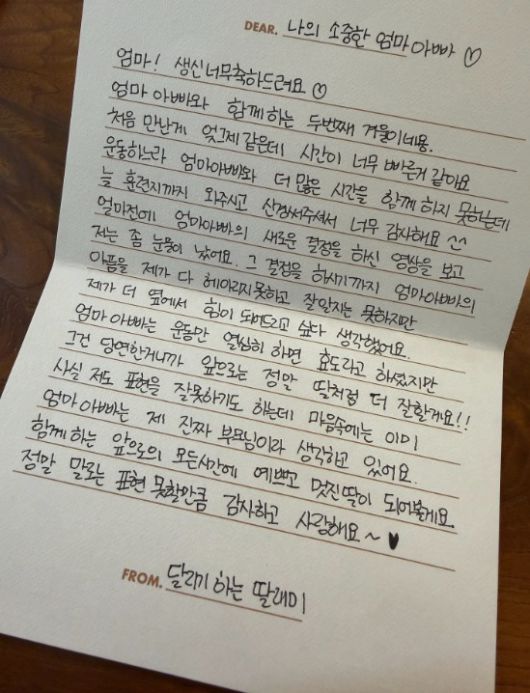 DEAR. 나의 소중한 엄마 아빠 ♡
엄마! 생신너무축하드려요 ♡
엄마 아빠와 함께하는 두번째 겨울이네용.
처음 만난게 엊그제 같은데 시간이 너무 빠른거 같아요
운동하느라 엄마아빠와 더 많은 시간을 함께 하지 못하는데
늘 훈련지까지 와주시고 신경써주셔서 너무 감사해요 ^^
얼마전에 엄마아빠의 새로운 결정을 하신 영상을 보고
저는 좀 눈물이 났어요. 그 결정을 하시기까지 엄마아빠의
아픔을 제가 다 헤아리지못하고 잘알지는 못하지만
제가 더 옆에서 힘이 되어드리고 싶다 생각했어요.
엄마 아빠는 운동만 열심히 하면 효도라고 하셨지만
그건 당연한거니까 앞으로는 정말 딸처럼 더 잘할게요!!
사실 저도 표현을 잘못하기도 하는데 마음속에는 이미
엄마 아빠는 제 진짜 부모님이라 생각하고 있어요.
함께 하는 앞으로의 모든시간에 예쁘고 멋진딸이 되어볼게요
정말 말로는 표현 못할만큼 감사하고 사랑해요~ ♥
FROM. 달리기 하는 딸래미